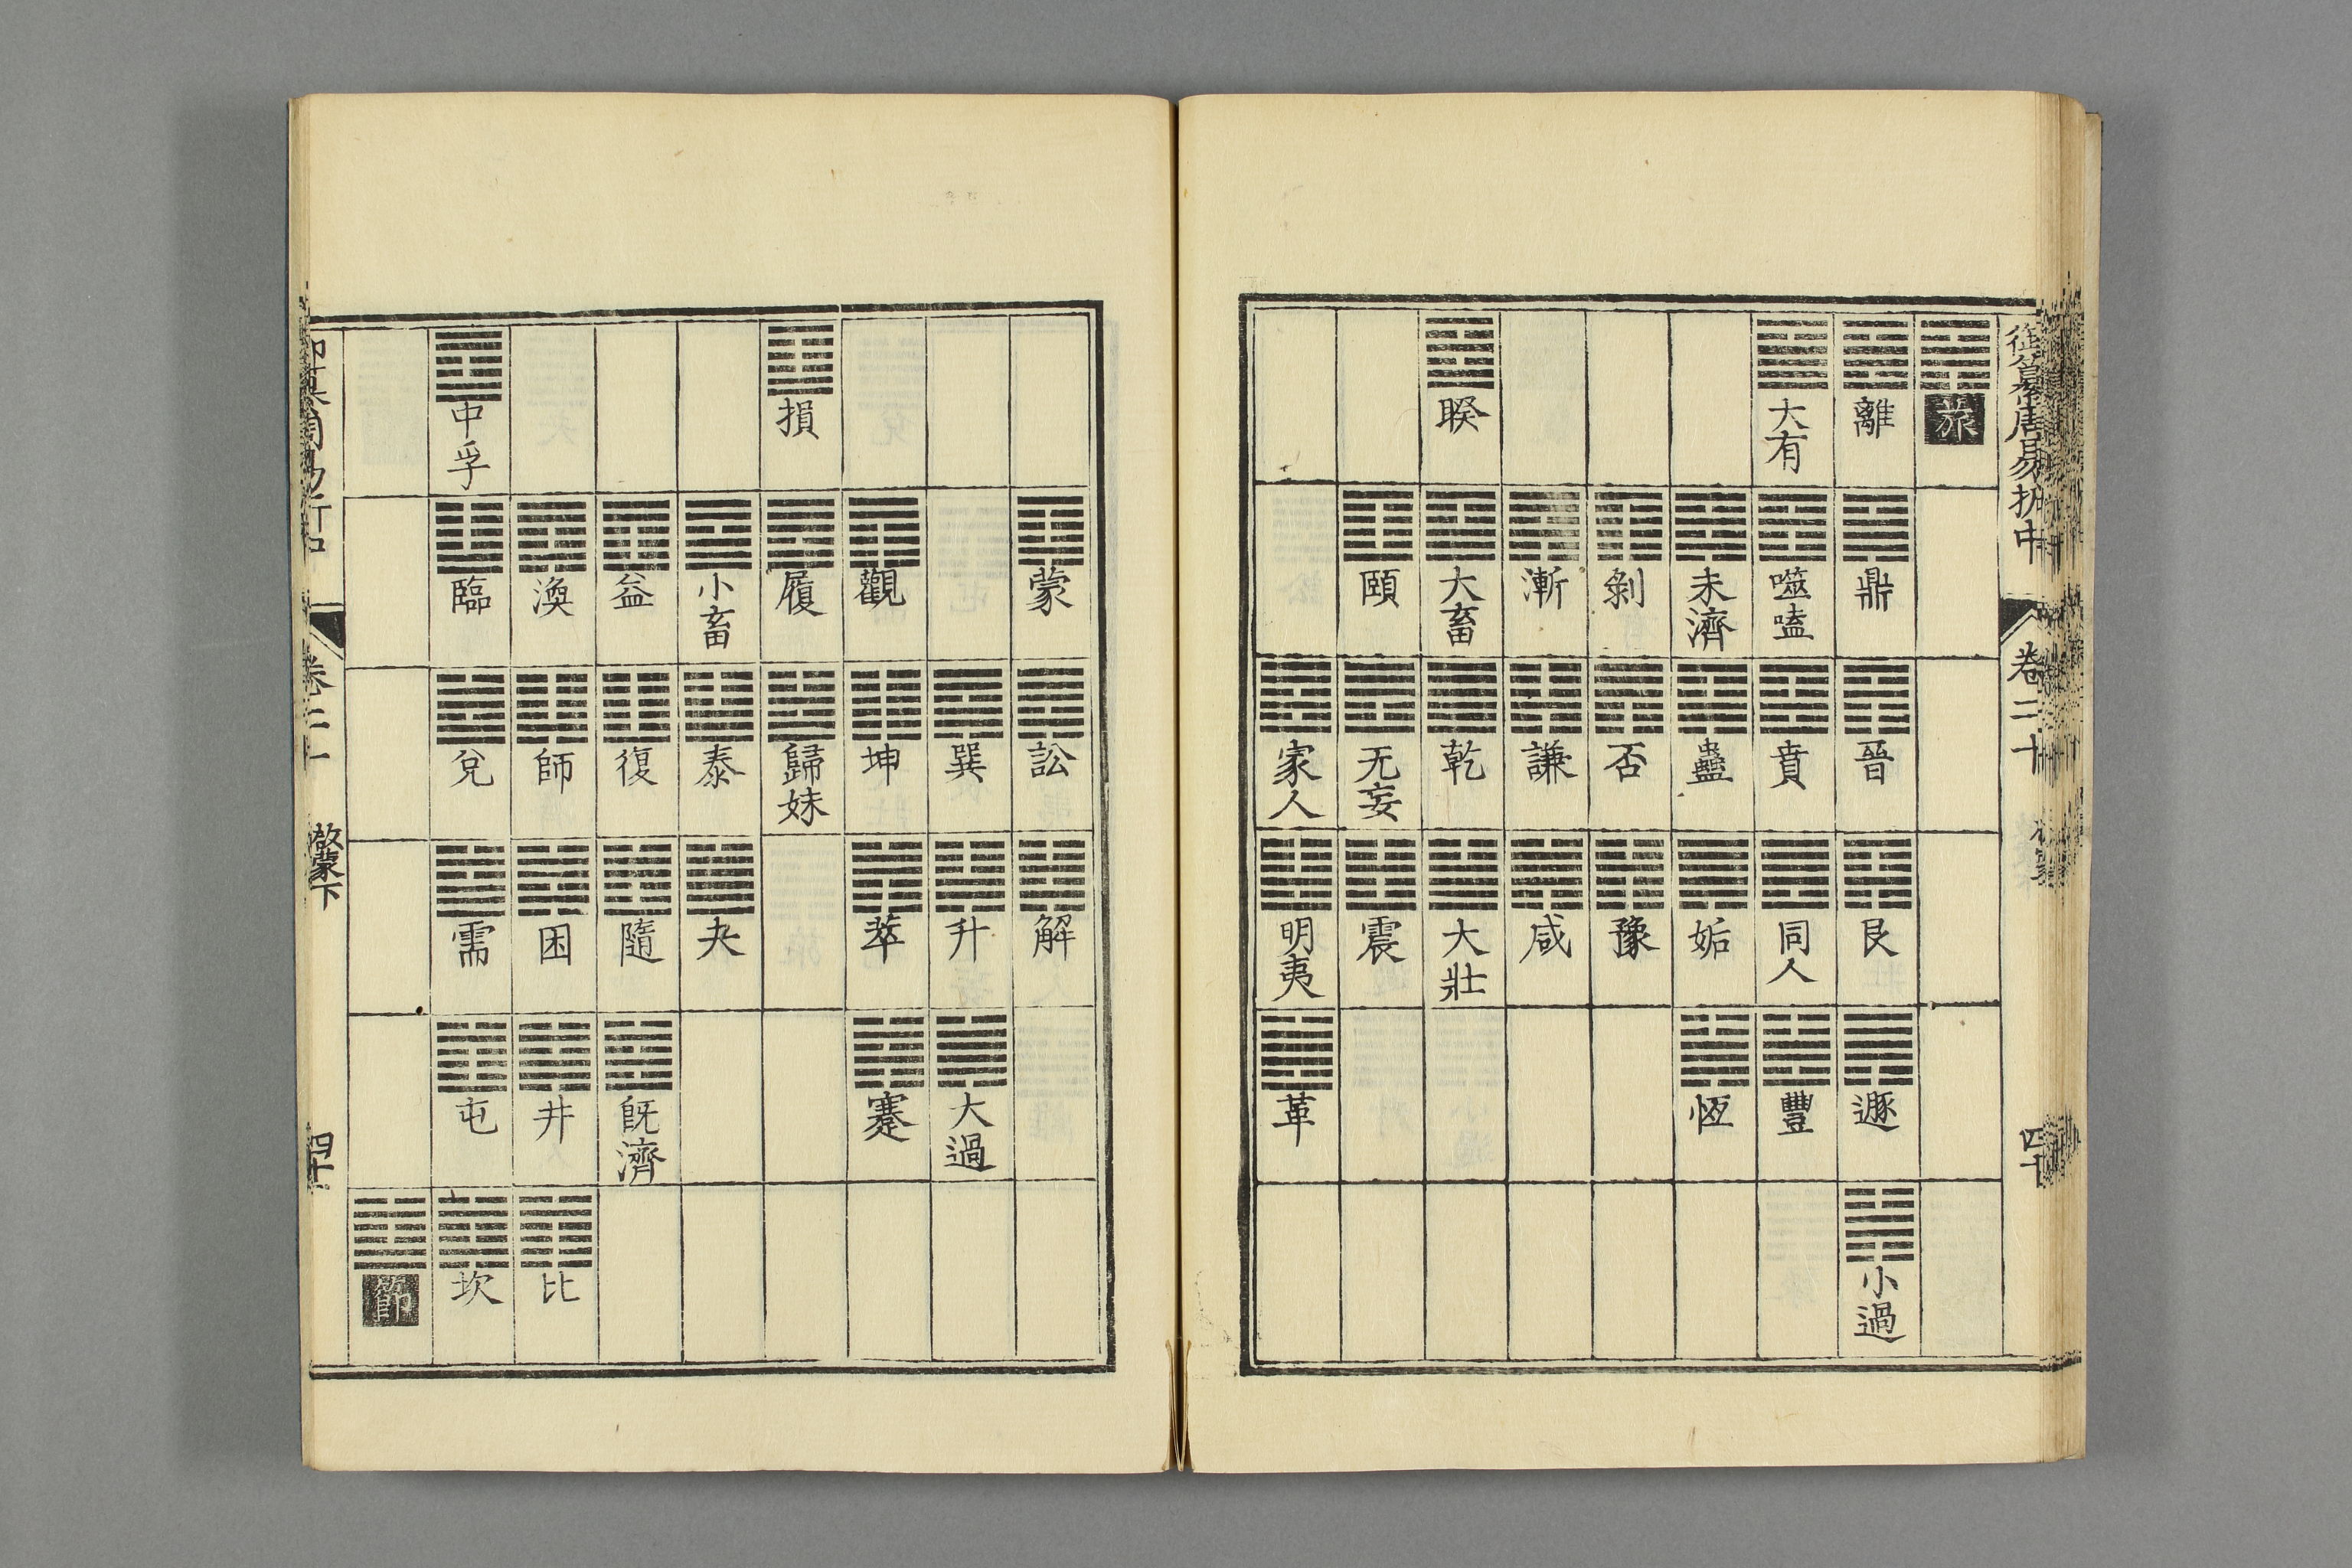 御纂周易折中 卷二十 四十
旅
離 鼎 晉 艮 遯 小過
大有 噬嗑 賁 同人 豐
未濟 蠱 姤 恆
剝 否 豫
漸 謙 咸
睽 大畜 乾 大壯
頤 无妄 震
家人 明夷 革
蒙 訟 解
巽 升 大過
觀 坤 萃 蹇
損 履 歸妹
小畜 泰 夬
益 復 隨 旣濟
渙 師 困 井 比
中孚 臨 兌 需 屯 坎
節
御纂周易折中 卷二十 啟蒙下 四十一